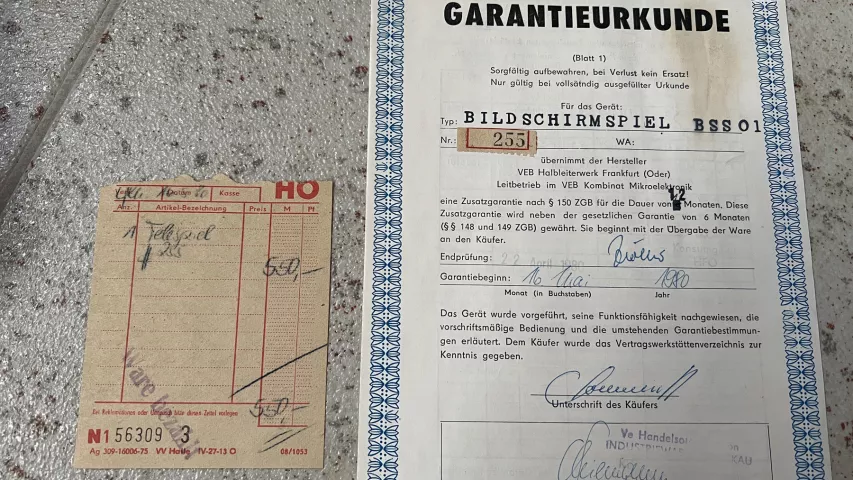 HO
Datum
Kasse
Anz. Artikel-Bezeichnung Preis M Pf
1 Telespiel
# 255
550,—
Ware bezahlt
Bei Reklamationen oder Umtausch bitte diesen Zettel vorlegen
550,—
N1 56309 3
Ag 309-16006-75 VV Halle IV-27-13 O 08/1053
GARANTIEURKUNDE
(Blatt 1)
Sorgfältig aufbewahren, bei Verlust kein Ersatz!
Nur gültig bei vollsätndig ausgefüllter Urkunde
Für das Gerät:
Typ: BILDSCHIRMSPIEL BSS01
Nr.: 255 WA:
übernimmt der Hersteller
VEB Halbleiterwerk Frankfurt (Oder)
Leitbetrieb im VEB Kombinat Mikroelektronik
eine Zusatzgarantie nach § 150 ZGB für die Dauer von 12 Monaten. Diese
Zusatzgarantie wird neben der gesetzlichen Garantie von 6 Monaten
(§ § 148 und 149 ZGB) gewährt. Sie beginnt mit der Übergabe der Ware
an den Käufer.
Endprüfung: 22. April 1980
Garantiebeginn: 16 Mai 1980
Monat (in Buchstaben) Jahr
Das Gerät wurde vorgeführt, seine Funktionsfähigkeit nachgewiesen, die
vorschriftsmäßige Bedienung und die umstehenden Garantiebestimmun-
gen erläutert. Dem Käufer wurde das Vertragswerkstättenverzeichnis zur
Kenntnis gegeben.
Unterschrift des Käufers
Ve Handelsor